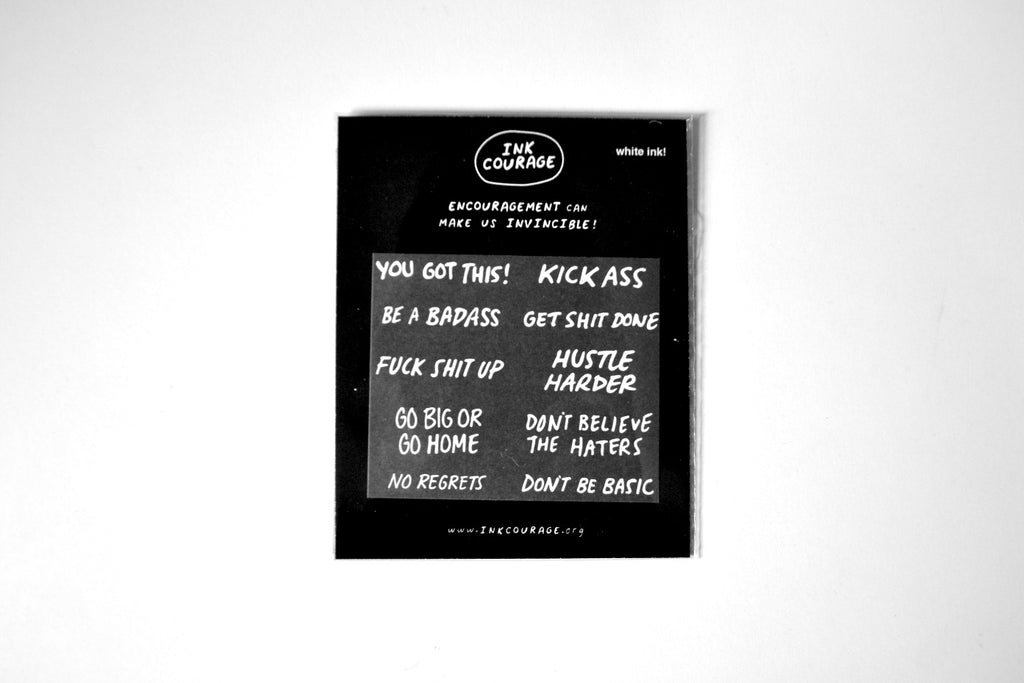 INK
COURAGE
white ink!
ENCOURAGEMENT CAN
MAKE US INVINCIBLE!
YOU GOT THIS!
KICK ASS
BE A BADASS
GET SHIT DONE
FUCK SHIT UP
HUSTLE
HARDER
GO BIG OR
GO HOME
DON'T BELIEVE
THE HATERS
NO REGRETS
DON'T BE BASIC
www.INKCOURAGE.org